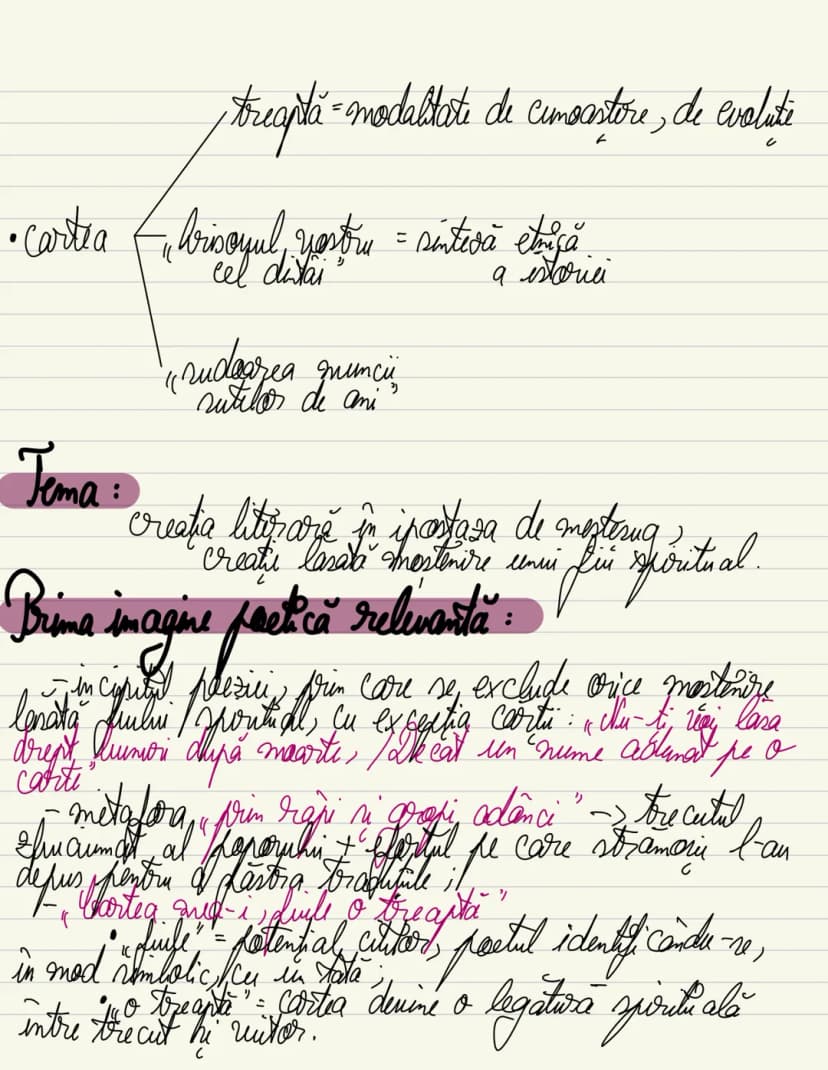 treaptă = modalitate de cunoaștere, de evoluție
• cartea
„hrisovul vostru = sinteză etnică
cel dintâi" a istoriei
„sudoarea muncii
sutelor de ani"
Tema:
creația literară în ipostaza de meșteșug,
creație lasată moștenire unui fiu spiritual.
Prima imagine poetică relevantă:
- incipitul poeziei, prin care se exclude orice moștenire
lăsată fiului spiritual, cu excepția cărții: „Nu-ți voi lăsa
drept bunuri după moarte, / Decât un nume adunat pe o
carte"
- metafora „prin râpi și gropi adânci" -> trecutul
zbuciumat al poporului + efortul pe care strămoșii l-au
depus pentru a păstra tradițiile;
- „Cartea mea-i, fiule o treaptă"
• „fiule" = potențial cititor, poetul identificându-se,
în mod simbolic, cu un tată;
• „o treaptă" = cartea devine o legătură spirituală
între trecut și viitor.